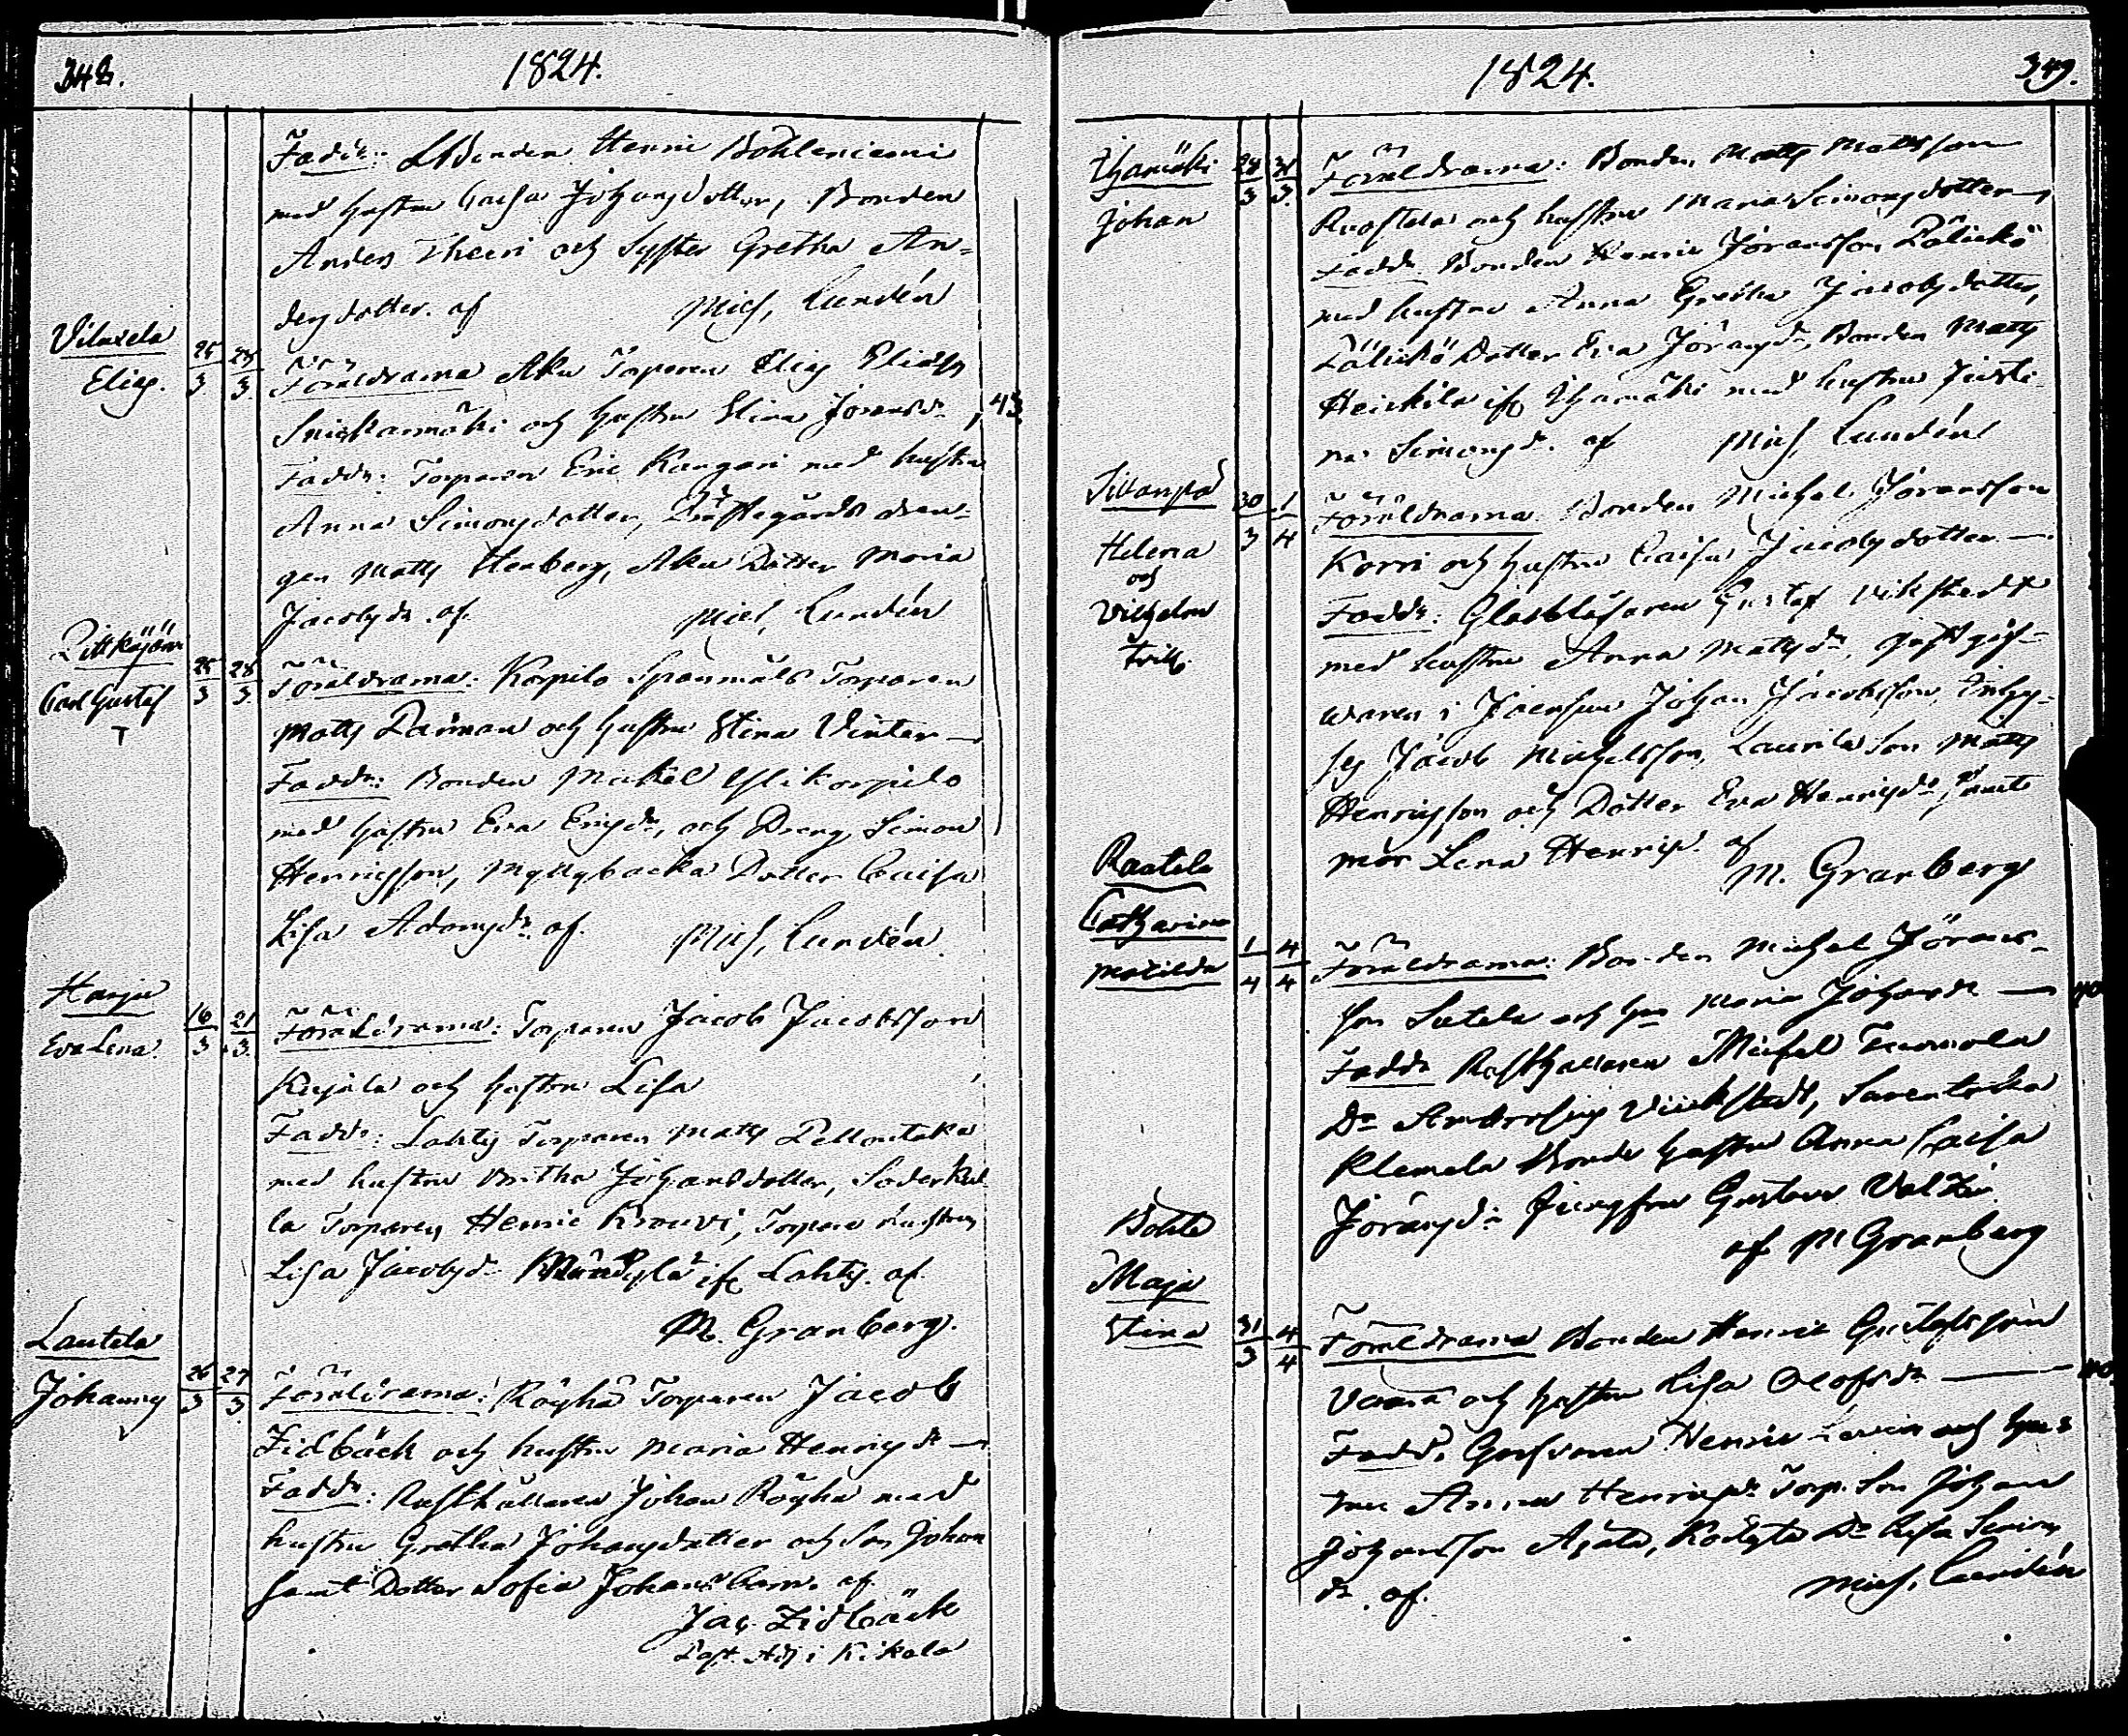 348.
1824.
Fadd: Henric
med hustru Caisa Johansdotter, Bonden
Anders och Syster Gretha An-
dersdotter. af Mich, Lundén
Vilusela
Elias.
25/3 28/3
Föräldrarna Aku Torparen Elias Eliass
Snickarmäki och hustru Stina Joransdr
43
Fadd: Torparen Eric Kangari med hustru
Anna Simonsdotter, Prästegårds dren-
gen Matts Henberg, Aku Dotter Maria
Jacobsdr. af. Mich, Lundén
Pittkäjärvi
Carl Gustaf
25/3 28/3
Föräldrarna: Korpilo Spanmåls Torparen
Matts Parman och hustru Stina Vinter —
Fadd: Bonden Mickel Ylikorpilo
med hustru Eva Ericsdr, och Dreng Simon
Henricsson, Myllybacka Dotter Caisa
Lisa Adamsdr. af. Mich, Lundén
Harju
Eva Lena.
16/3 21/3
Föräldrarna: Torparen Jacob Jacobsson
Kujala och hustru Lisa
Fadd: Lahtis Torparen Matts
med hustru Britha Johansdotter, Söderkul
la Torparen Henric Krouvi, Torpare hustrun
Lisa Jacobsdr if Lahtis. af.
M. Granberg.
Lautela
Johannes
26/3 27/3
Föräldrarna: Röyhä Torparen Jacob
Zidbäck och hustru Maria Henricsdr —
Fadd: Rusthållaren Johan Röyhä med
hustru Gretha Johansdotter och Son Johan
samt Dotter Sofia Johans barn. af
Jac. Zidbäck
Past. Adj i Kikala
1824.
349.
Yhamäki
Johan
28/3 31/3
Föräldrarna: Bonden Matts Mattsson
och hustru Maria Simonsdotter —
Fadd. Bonden Henric Joransson Pälickö
med hustru Anna Gretha Jacobsdotter,
Pälickö Dotter Eva Joransdr, Bonden Matts
Heickilä if Yhamäki med hustru Justi-
na Simonsdr. af Mich, Lundén
Sillanpää
Helena
och
Vilhelm
Tvill.
30/3 1/4
Föräldrarna Bonden Michel Joransson
Korri och hustru Caisa Jacobsdotter —
Fadd: Glasblåsaren Gustaf Vikstedt
med hustru Anna Mattsdr, Gästgif-
waren i Johan Jacobsson, Inhy-
ses Jacob Michelsson, Laurila Son Matts
Henricsson och Dotter Eva Henricsdr, samt
mör Lena Henricsd. af
M. Granberg
Raatela
Catharina
Matilda
1/4 4/4
Föräldrarna: Bonden Michel Jörans-
son Sutela och Hu Maria Johansdr —
40
Fadd Rusthållaren Michel Tuomola
Do Viickstedt,
Klemela Bonde hustru Anna Caisa
Joransdr Jungfru Gustava
af M Granberg
Maja
Stina
31/3 4/4
Föräldrarna Bonden Henric Gustafsson
och hustru Lisa Olofsdr —
40.
Fadd. Henric och Hus-
tru Anna Henricsdr Torp. Son Johan
Johansson Do Lisa Simons
dr. af. Mich, Lundén